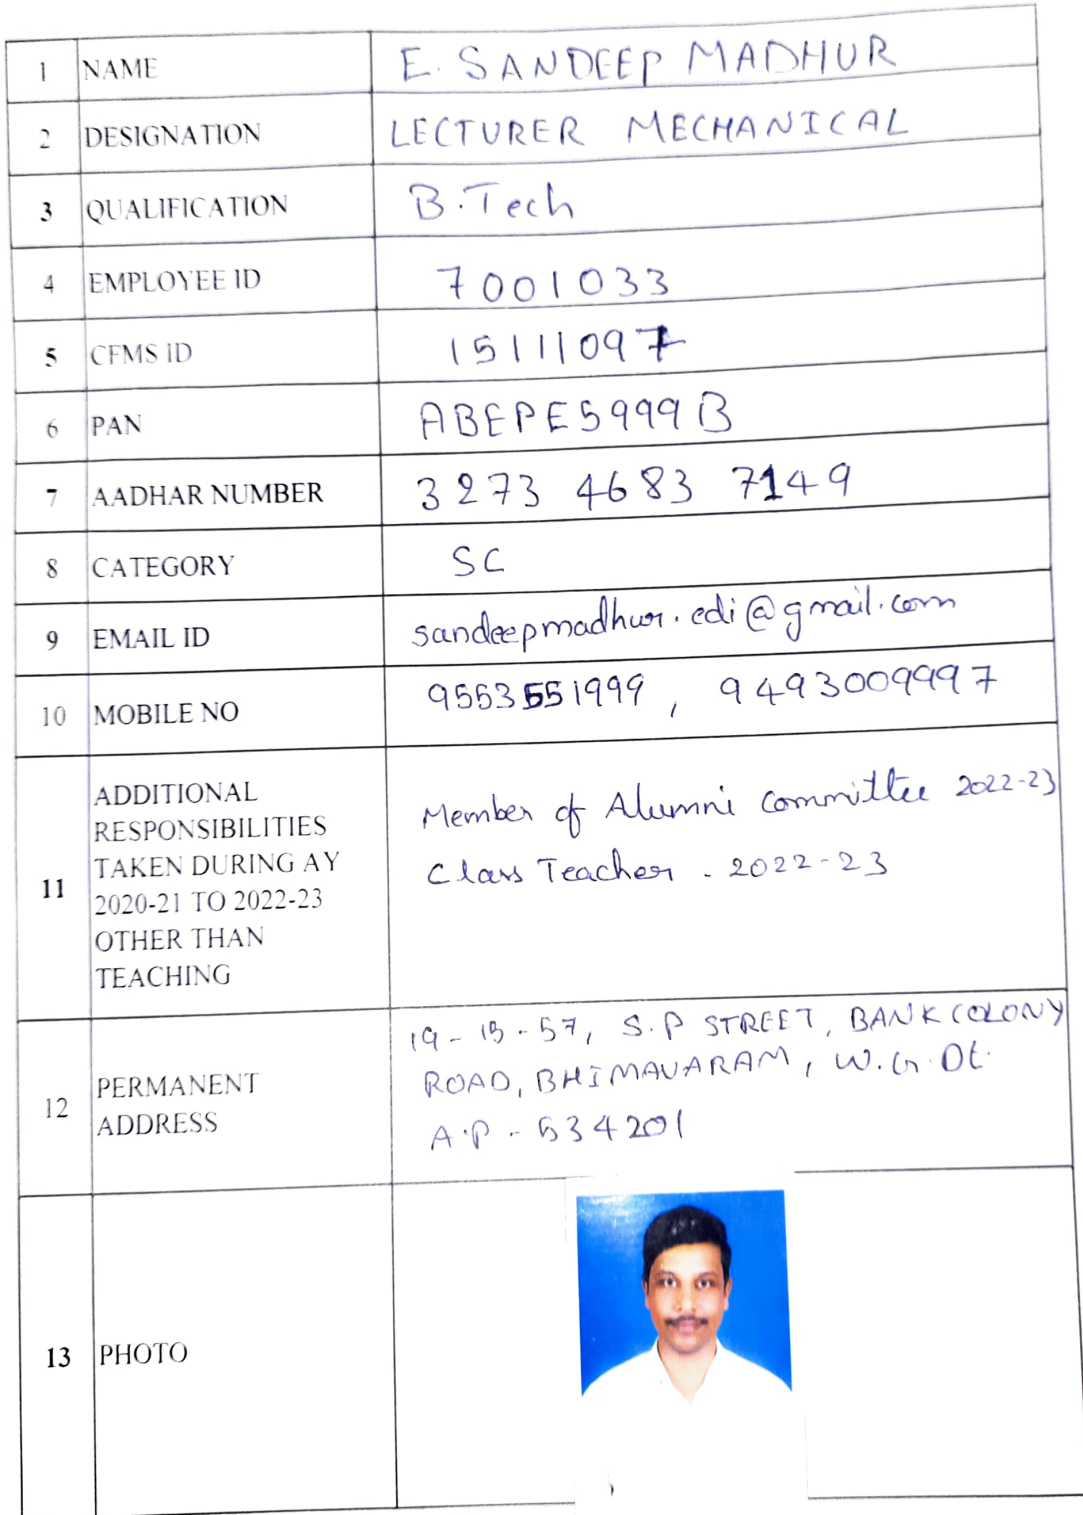 1 NAME E. SANDEEP MADHUR
2 DESIGNATION LECTURER MECHANICAL
3 QUALIFICATION B.Tech
4 EMPLOYEE ID 7001033
5 CFMS ID 15111097
6 PAN ABEPE5999B
7 AADHAR NUMBER 3273 4683 7149
8 CATEGORY SC
9 EMAIL ID sandeepmadhur.edi@gmail.com
10 MOBILE NO 9553551999, 9493009997
11 ADDITIONAL
RESPONSIBILITIES
TAKEN DURING AY
2020-21 TO 2022-23
OTHER THAN
TEACHING
Member of Alumni Committee 2022-23
Class Teacher . 2022-23
12 PERMANENT
ADDRESS
19-15-57, S.P STREET, BANK COLONY
ROAD, BHIMAVARAM, W.G.Dt.
A.P - 534201
13 PHOTO